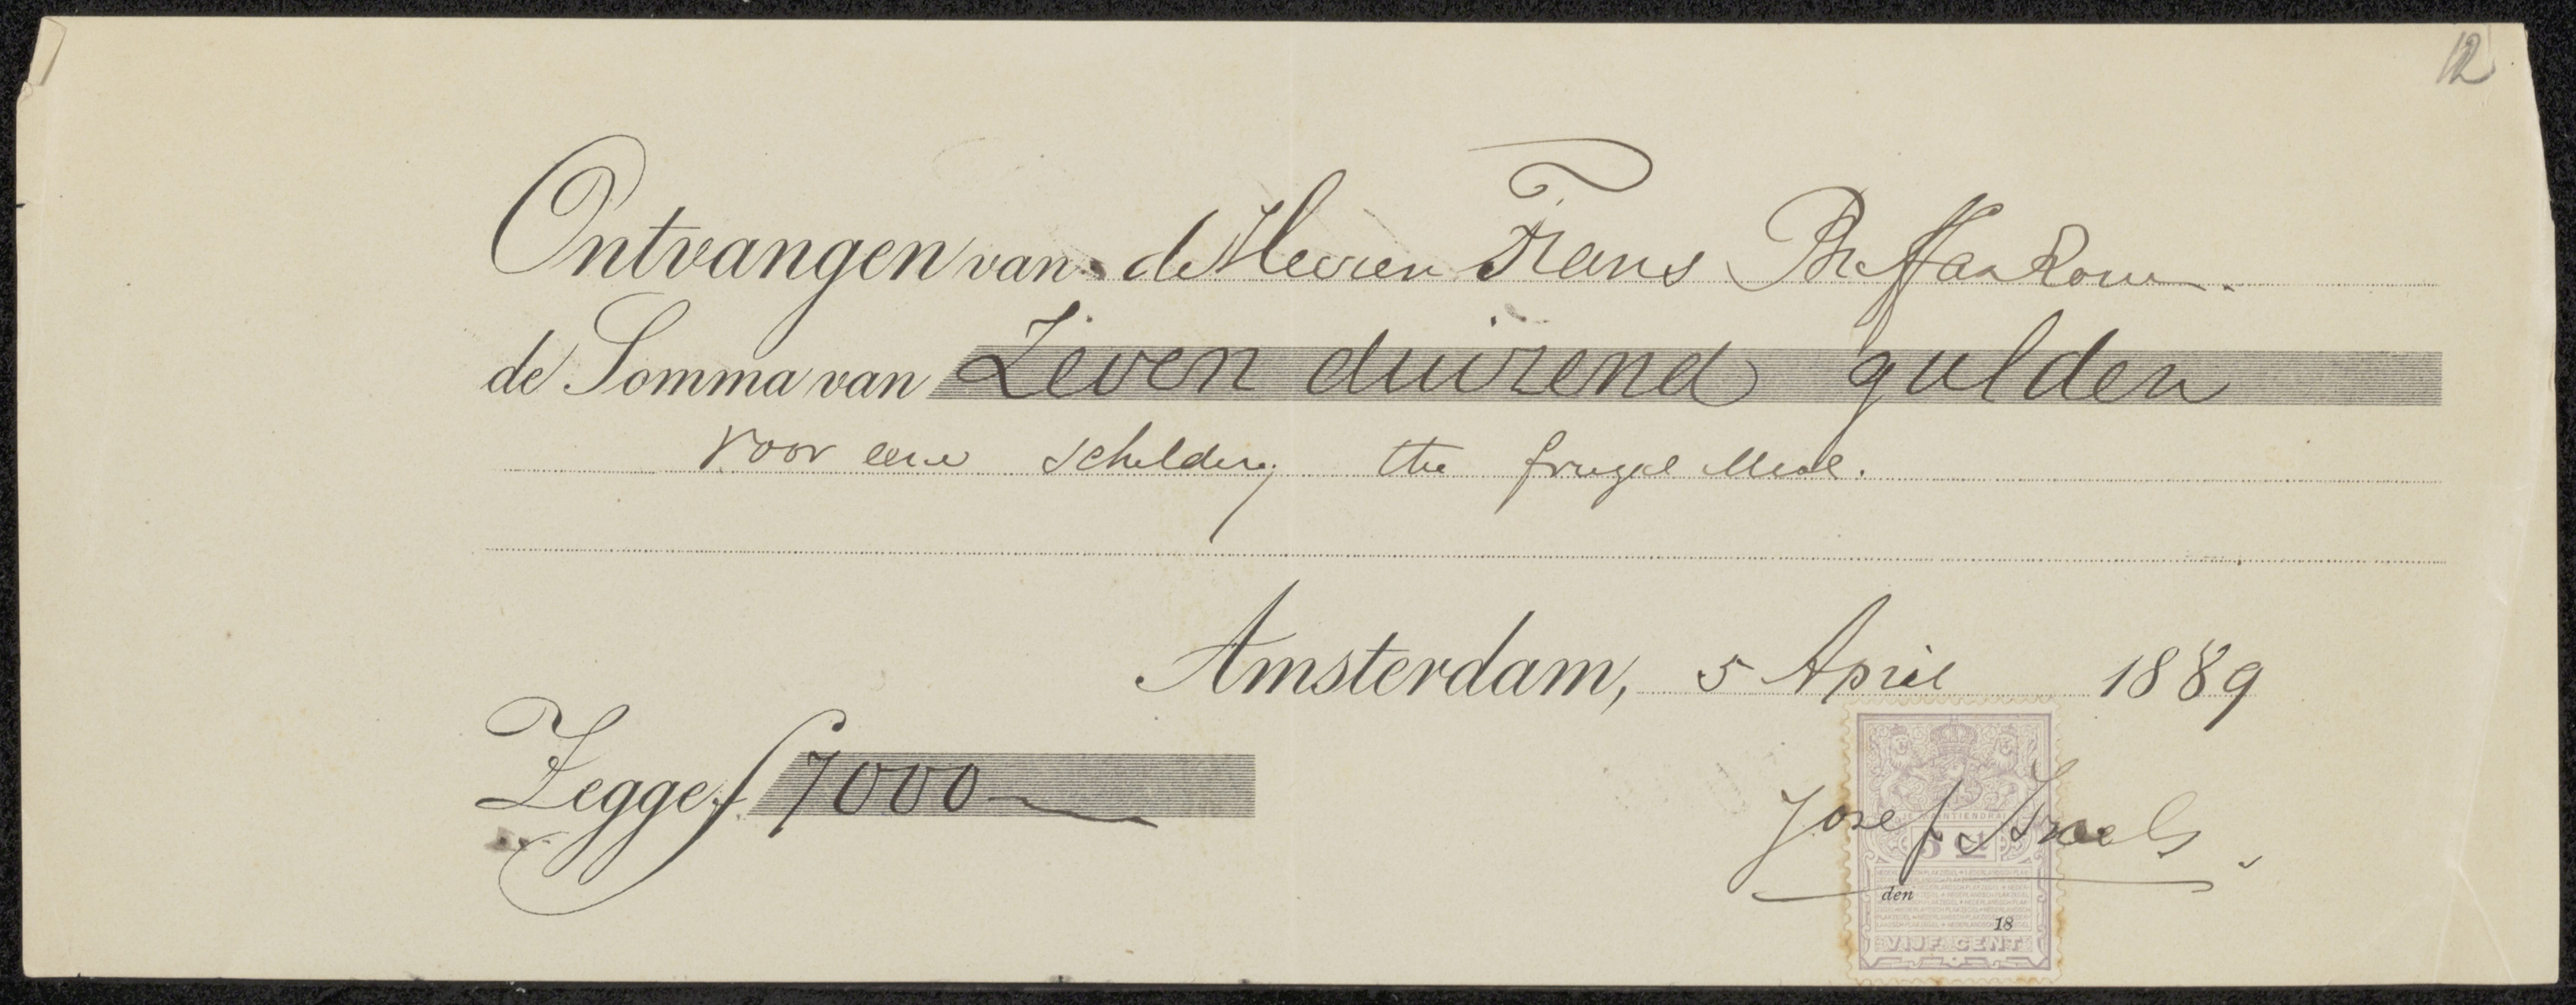 12
Ontvangen van de Heeren Frans B.
de Somma van Zeven duizend gulden
voor eene schildery the frugal Meal.
Amsterdam, 5 April 1889
Zegge f 7000
Jozef Israels
5 ct
den
18
VIJF CENT